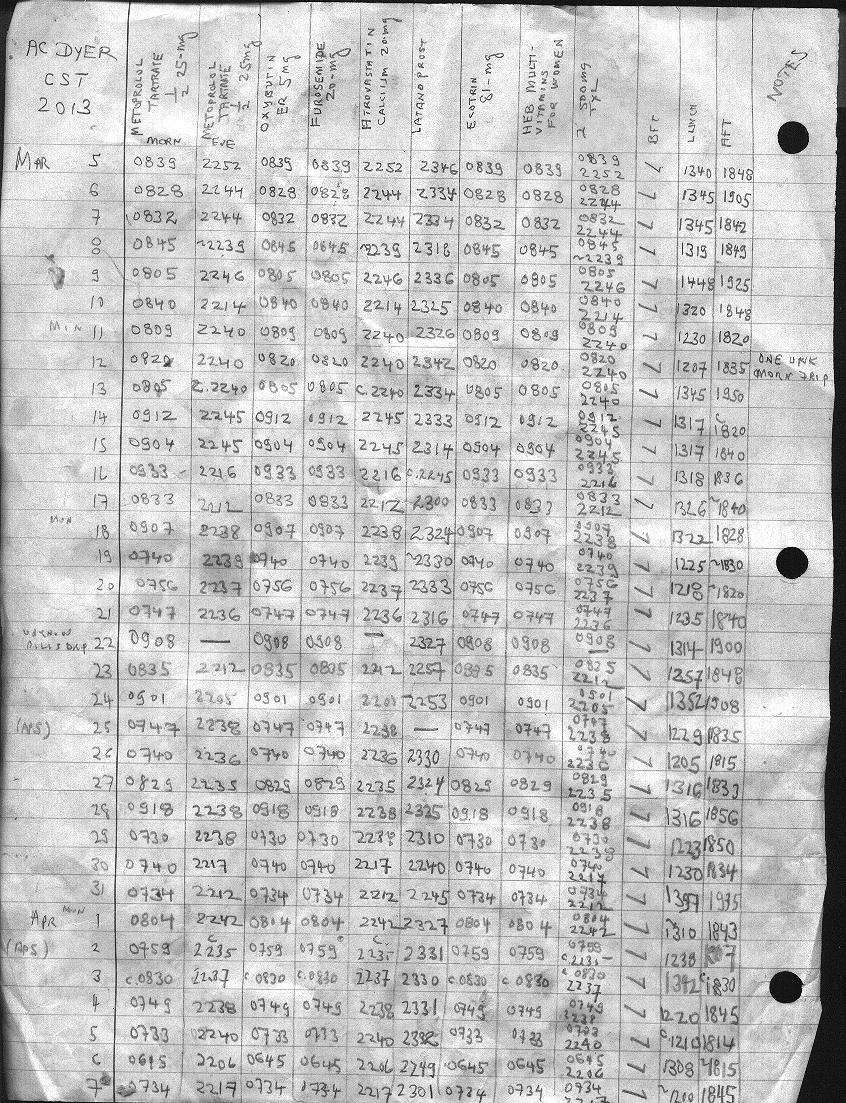 AC DYER
CST
2013
METOPROLOL TARTRATE ½ 25-mg MORN
METOPROLOL TARTRATE ½ 25mg EVE
OXYBUTIN ER 5mg
FUROSEMIDE 20-mg
ATROVASTATIN CALCIUM 20mg
LATANOPROST
ECOTRIN 81-mg
HEB MULTI-VITAMINS FOR WOMEN
2 500mg TYL
BFT
LUNCH
AFT
NOTES
MAR 5 0839 2252 0839 0839 2252 2346 0839 0839 0839 2252 ✓ 1340 1848
6 0828 2244 0828 0828 2244 2334 0828 0828 0828 2244 ✓ 1345 1905
7 0832 2244 0832 0832 2244 2334 0832 0832 0832 2244 ✓ 1345 1842
8 0845 ~2239 0845 0845 ~2239 2318 0845 0845 0845 ~2239 ✓ 1319 1849
9 0805 2246 0805 0805 2246 2336 0805 0805 0805 2246 ✓ 1448 1925
10 0840 2214 0840 0840 2214 2325 0840 0840 0840 2214 ✓ 1320 1848
11 0809 2240 0809 0809 2240 2326 0809 0809 0809 2240 ✓ 1230 1820
12 0820 2240 0820 0820 2240 2342 0820 0820 0820 2240 ✓ 1207 1835 ONE UNK MORN
13 0805 c.2240 0805 0805 c.2240 2334 0805 0805 0805 2240 ✓ 1345 1950
14 0912 2245 0912 0912 2245 2333 0912 0912 0912 2245 ✓ 1317 c1820
15 0904 2245 0904 0904 2245 2314 0904 0904 0904 2245 ✓ 1317 1840
16 0933 2216 0933 0933 2216 c.2245 0933 0933 0933 2216 ✓ 1318 1836
17 0833 2212 0833 0833 2212 2300 0833 0833 0833 2212 ✓ 1326 ~1840
MON 18 0907 2238 0907 0907 2238 2324 0907 0907 0907 2238 ✓ 1322 1828
19 0740 2239 0740 0740 2239 ~2330 0740 0740 0740 2239 ✓ 1225 ~1830
20 0756 2237 0756 0756 2237 2333 0756 0756 0756 2237 ✓ 1218 ~1820
21 0747 2236 0747 0747 2236 2316 0747 0747 0747 2236 ✓ 1235 1840
22 0908 — 0908 0908 — 2327 0908 0908 0908 — ✓ 1314 1900
23 0835 2212 0835 0835 2212 2257 0835 0835 0835 2212 ✓ 1257 1848
24 0901 2205 0901 0901 2205 2253 0901 0901 0901 2205 ✓ 1352 1908
25 0747 2238 0747 0747 2238 — 0747 0747 0747 2238 ✓ 1229 1835
26 0740 2236 0740 0740 2236 2330 0740 0740 0740 2236 ✓ 1205 1815
27 0829 2235 0829 0829 2235 2324 0829 0829 0829 2235 ✓ 1316 1833
28 0918 2238 0918 0918 2238 2325 0918 0918 0918 2238 ✓ 1316 1856
29 0730 2238 0730 0730 2238 2310 0730 0730 0730 2238 ✓ 1223 1850
30 0740 2217 0740 0740 2217 2240 0740 0740 0740 2217 ✓ 1230 1834
31 0734 2212 0734 0734 2212 2245 0734 0734 0734 2212 ✓ 1935
APR MON 1 0804 2242 0804 0804 2242 2327 0804 0804 0804 2242 ✓ ~1310 1843
2 0759 c2235 0759 0759 c.2235 2331 0759 0759 0759 c.2235 ✓ 1238
3 c.0830 2237 c.0830 c.0830 2237 2330 c.0830 c.0830 c.0830 2237 ✓ 1342 c1830
4 0749 2238 0749 0749 2238 2331 0749 0749 0749 2238 ✓ 1220 1845
5 0733 2240 0733 0733 2240 2332 0733 0733 0733 2240 ✓ c1210 1814
6 0645 2206 0645 0645 2206 2249 0645 0645 0645 2206 ✓ 1308 ~1815
7 0734 2217 0734 0734 2217 2301 0734 0734 0734 2217 ✓ ~1200 1845